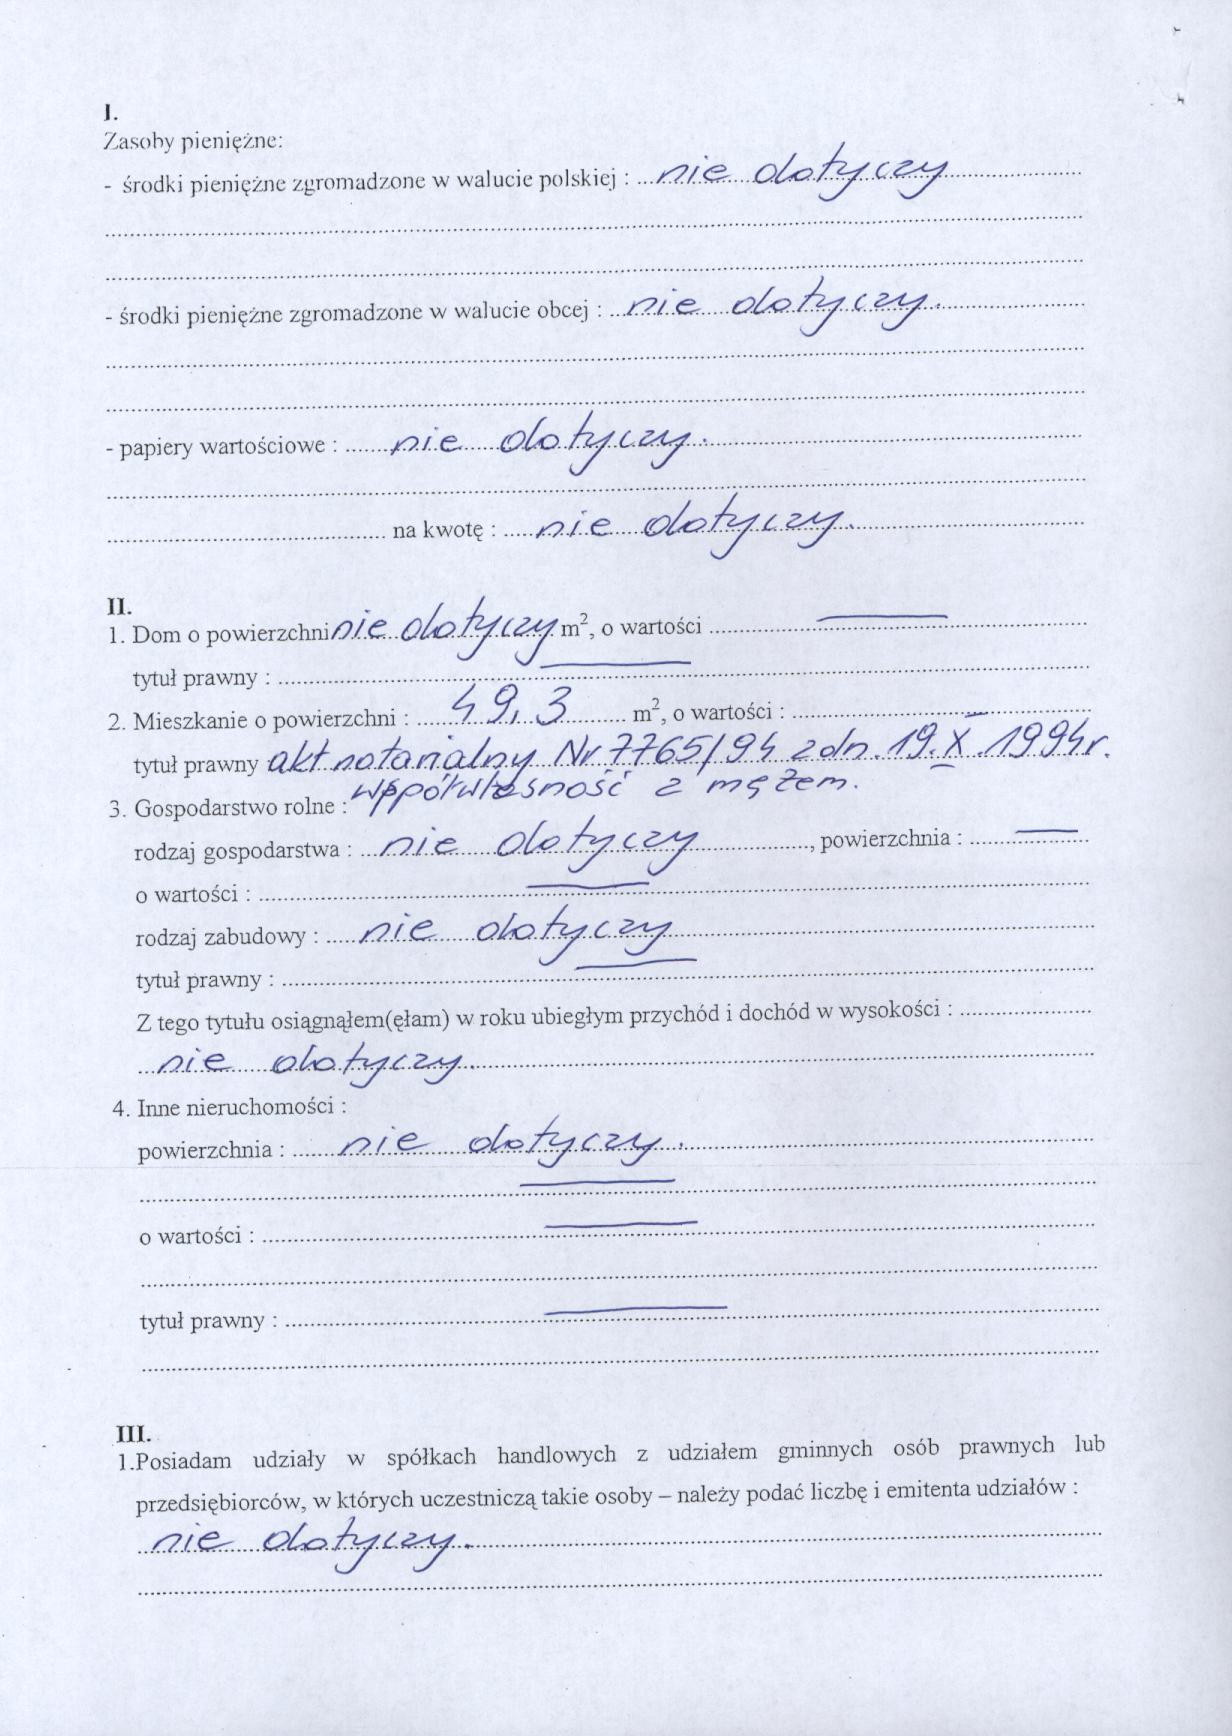 I.
Zasoby pieniężne:
- środki pieniężne zgromadzone w walucie polskiej : nie dotyczy
- środki pieniężne zgromadzone w walucie obcej : nie dotyczy.
- papiery wartościowe : nie dotyczy.
na kwotę : nie dotyczy.
II.
1. Dom o powierzchni nie dotyczy m², o wartości —
tytuł prawny : —
2. Mieszkanie o powierzchni : 49,3 m², o wartości : —
tytuł prawny akt notarialny Nr 7765/94 z dn. 19.X.1994r.
współwłasność z mężem.
3. Gospodarstwo rolne :
rodzaj gospodarstwa : nie dotyczy, powierzchnia : —
o wartości : —
rodzaj zabudowy : nie dotyczy
tytuł prawny : —
Z tego tytułu osiągnąłem(ęłam) w roku ubiegłym przychód i dochód w wysokości :
nie dotyczy.
4. Inne nieruchomości :
powierzchnia : nie dotyczy.
—
o wartości : —
tytuł prawny : —
III.
1.Posiadam udziały w spółkach handlowych z udziałem gminnych osób prawnych lub
przedsiębiorców, w których uczestniczą takie osoby – należy podać liczbę i emitenta udziałów :
nie dotyczy.